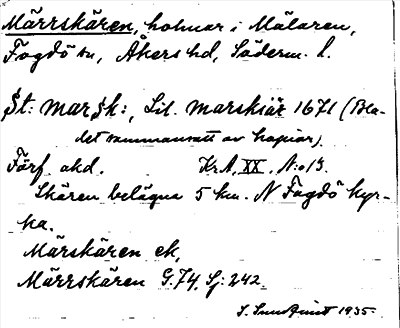 Märrskären, holmar i Mälaren,
Fogdö sn, Åkers hd, Söderm. l.
St: marsk:, Lil. marskiär 1671 (Bla-
det sammansatt av kopior).
Förf. okd. KrA, XX. N:o 13.
Skären belägna 5 km. N Fogdö kyr-
ka.
Märskären ek,
Märrskären G.74, Sj:242.
S. Sundquist 1935.